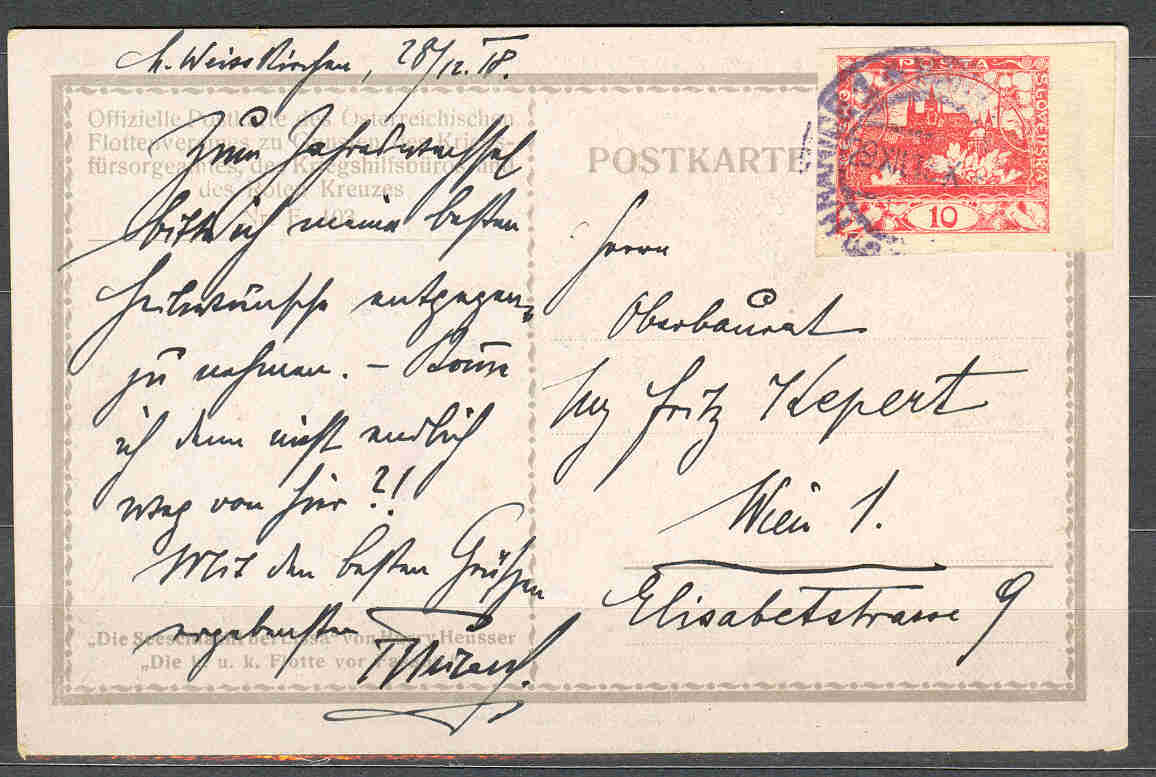 M. Weisskirchen, 28/12.18.
Offizielle Postkarte des Österreichischen
Flottenvereines zu Gunsten des Kriegs-
fürsorgeamtes, des Kriegshilfsbüros und
des Roten Kreuzes
Nr. 103
Zum Jahreswechsel
bitte ich meine besten
Heilwünsche entgegen-
zu nehmen. – Komme
ich denn nicht endlich
weg von hier?!
Mit den besten Grüßen
ergebenster
„Die Seeschlacht bei Lissa“ von Harry Heusser
„Die k. u. k. Flotte vor
POSTKARTE
POSTA
SLOVENSKÁ
10
Herrn
Oberbaurat
Ing Fritz Kepert
Wien 1.
Elisabetstrasse 9